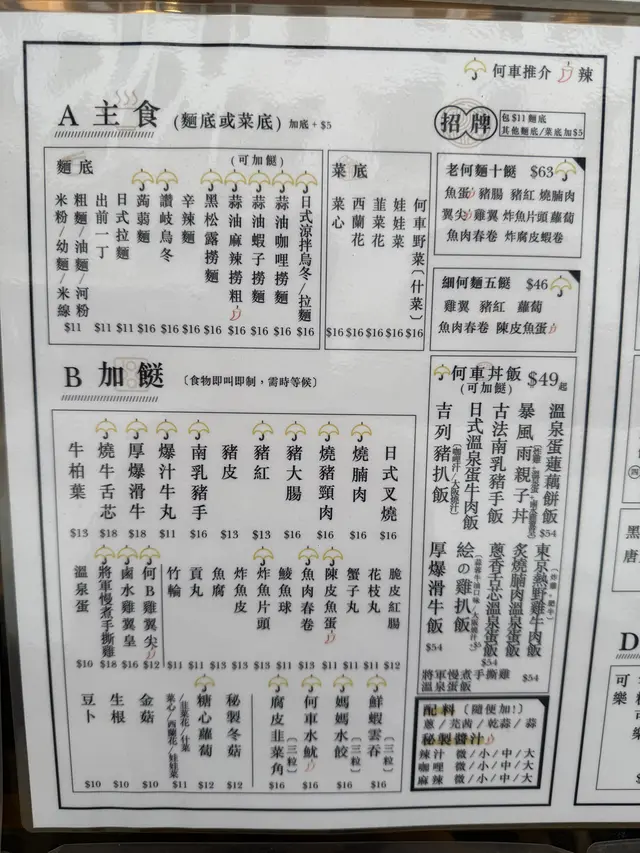 何車推介 辣
A 主食 (麵底或菜底) 加底+$5
招牌
包$11麵底
其他麵底/菜底加$5
麵底
(可加餸)
日式涼拌烏冬/拉麵 $16
蒜油咖哩撈麵 $16
蒜油蝦子撈麵 $16
蒜油麻辣撈粗 $16
黑松露撈麵 $16
辛辣麵 $16
讚岐烏冬 $16
蒟蒻麵 $16
日式拉麵 $11
出前一丁 $11
粗麵/油麵/河粉
米粉/幼麵/米線 $11
菜底
何車野菜(什菜) $16
娃娃菜 $16
韮菜花 $16
西蘭花 $16
菜心 $16
老何麵十餸 $63
魚蛋 豬腸 豬紅 燒腩肉
翼尖 雞翼 炸魚片頭 蘿蔔
魚肉春卷 炸腐皮蝦卷
細何麵五餸 $46
雞翼 豬紅 蘿蔔
魚肉春卷 陳皮魚蛋
B 加餸 (食物即叫即制,需時等候)
日式叉燒 $16
燒腩肉 $16
燒豬頸肉 $16
豬大腸 $16
豬紅 $13
豬皮 $13
南乳豬手 $16
爆汁牛丸 $11
厚爆滑牛 $18
燒牛舌芯 $18
牛柏葉 $13
脆皮紅腸 $12
花枝丸 $11
蟹子丸 $11
陳皮魚蛋 $11
魚肉春卷 $13
鯪魚球 $11
炸魚片頭 $13
炸魚皮 $13
魚腐 $13
貢丸 $11
竹輪 $11
何B雞翼尖 $12
鹵水雞翼皇 $16
將軍慢煮手撕雞 $18
溫泉蛋 $10
鮮蝦雲吞(三粒) $16
媽媽水餃(三粒) $16
何車水魷 $16
腐皮韭菜角(三粒) $16
秘製冬菇 $12
糖心蘿蔔 $12
/韭菜花/什菜
菜心/西蘭花/娃娃菜 $11
金菇 $10
生根 $10
豆卜 $10
何車丼飯 $49起
(可加餸)
溫泉蛋蓮藕餅飯 $54
暴風雨親子丼
古法南乳豬手飯
日式溫泉蛋牛肉飯
吉列豬扒飯
東京熱野雞牛肉飯
炙燒腩肉溫泉蛋飯
蔥香舌芯溫泉蛋飯 $54
絵の雞扒飯
厚爆滑牛飯 $54
將軍慢煮手撕雞
溫泉蛋飯 $54
配料(隨便加!)
蔥/芫茜/乾蒜/蒜
秘製醬汁
辣汁 微/小/中/大
咖哩 微/小/中/大
麻辣 微/小/中/大
黑
唐
D
可樂